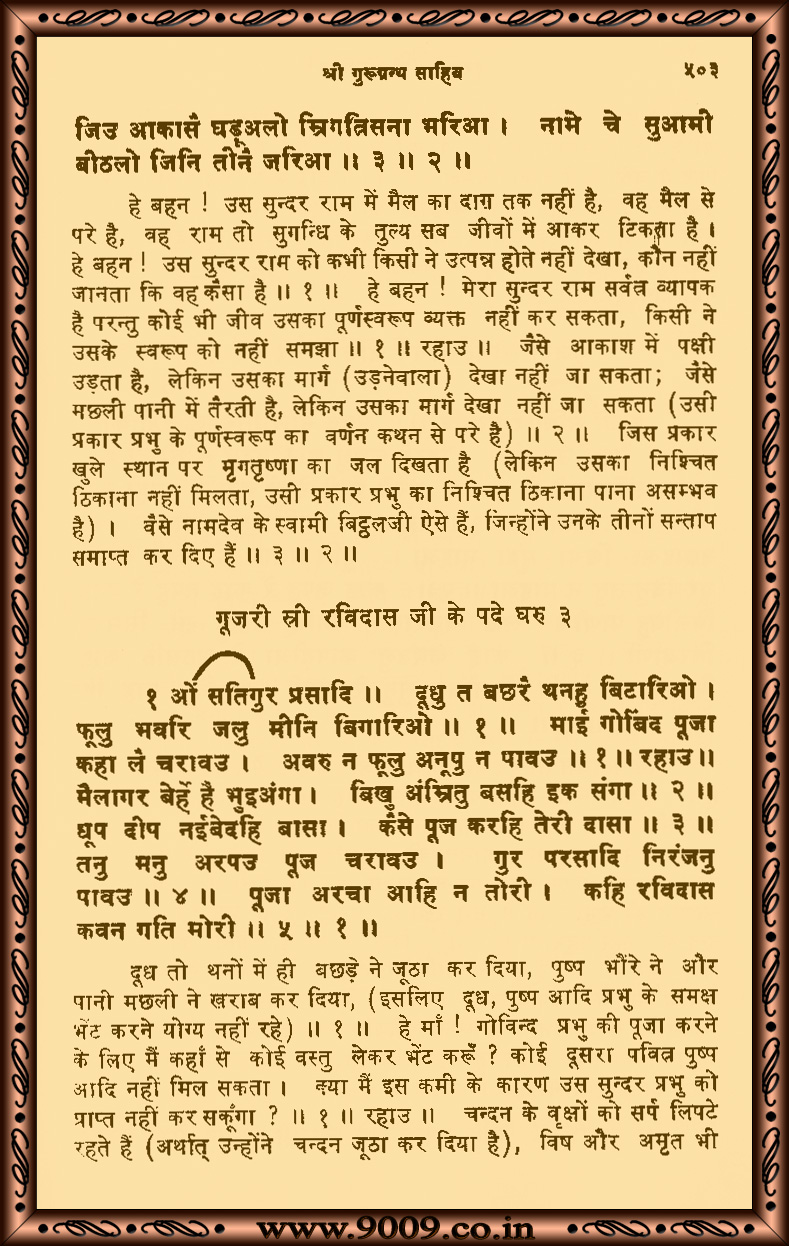 श्री गुरूग्रन्थ साहिब ५०३
जिउ आकासै घड़ूअलो म्रिगत्रिसना भरिआ । नामे चे सुआमी
बीठलो जिनि तीनै जरिआ ॥ ३ ॥ २ ॥
हे बहन ! उस सुन्दर राम में मैल का दाग़ तक नहीं है, वह मैल से
परे है, वह राम तो सुगन्धि के तुल्य सब जीवों में आकर टिकता है ।
हे बहन ! उस सुन्दर राम को कभी किसी ने उत्पन्न होते नहीं देखा, कौन नहीं
जानता कि वह कैसा है ॥ १ ॥ हे बहन ! मेरा सुन्दर राम सर्वत्र व्यापक
है परन्तु कोई भी जीव उसका पूर्णस्वरूप व्यक्त नहीं कर सकता, किसी ने
उसके स्वरूप को नहीं समझा ॥ १ ॥ रहाउ ॥ जैसे आकाश में पक्षी
उड़ता है, लेकिन उसका मार्ग (उड़नेवाला) देखा नहीं जा सकता; जैसे
मछली पानी में तैरती है, लेकिन उसका मार्ग देखा नहीं जा सकता (उसी
प्रकार प्रभु के पूर्णस्वरूप का वर्णन कथन से परे है) ॥ २ ॥ जिस प्रकार
खुले स्थान पर मृगतृष्णा का जल दिखता है (लेकिन उसका निश्चित
ठिकाना नहीं मिलता, उसी प्रकार प्रभु का निश्चित ठिकाना पाना असम्भव
है) । वैसे नामदेव के स्वामी बिट्ठलजी ऐसे हैं, जिन्होंने उनके तीनों सन्ताप
समाप्त कर दिए हैं ॥ ३ ॥ २ ॥
गूजरी स्री रविदास जी के पदे घरु ३
१ ओं सतिगुर प्रसादि ॥ दूधु त बछरै थनहु बिटारिओ ।
फूलु भवरि जलु मीनि बिगारिओ ॥ १ ॥ माई गोबिंद पूजा
कहा लै चरावउ । अवरु न फूलु अनूपु न पावउ ॥ १ ॥ रहाउ ॥
मैलागर बेर्हे है भुइअंगा । बिखु अंम्रितु बसहि इक संगा ॥ २ ॥
धूप दीप नईबेदहि बासा । कैसे पूज करहि तेरी दासा ॥ ३ ॥
तनु मनु अरपउ पूज चरावउ । गुर परसादि निरंजनु
पावउ ॥ ४ ॥ पूजा अरचा आहि न तोरी । कहि रविदास
कवन गति मोरी ॥ ५ ॥ १ ॥
दूध तो थनों में ही बछड़े ने जूठा कर दिया, पुष्प भौंरे ने और
पानी मछली ने ख़राब कर दिया, (इसलिए दूध, पुष्प आदि प्रभु के समक्ष
भेंट करने योग्य नहीं रहे) ॥ १ ॥ हे माँ ! गोविन्द प्रभु की पूजा करने
के लिए मैं कहाँ से कोई वस्तु लेकर भेंट करूँ ? कोई दूसरा पवित्र पुष्प
आदि नहीं मिल सकता । क्या मैं इस कमी के कारण उस सुन्दर प्रभु को
प्राप्त नहीं कर सकूँगा ? ॥ १ ॥ रहाउ ॥ चन्दन के वृक्षों को सर्प लिपटे
रहते हैं (अर्थात् उन्होंने चन्दन जूठा कर दिया है), विष और अमृत भी
www.9009.co.in